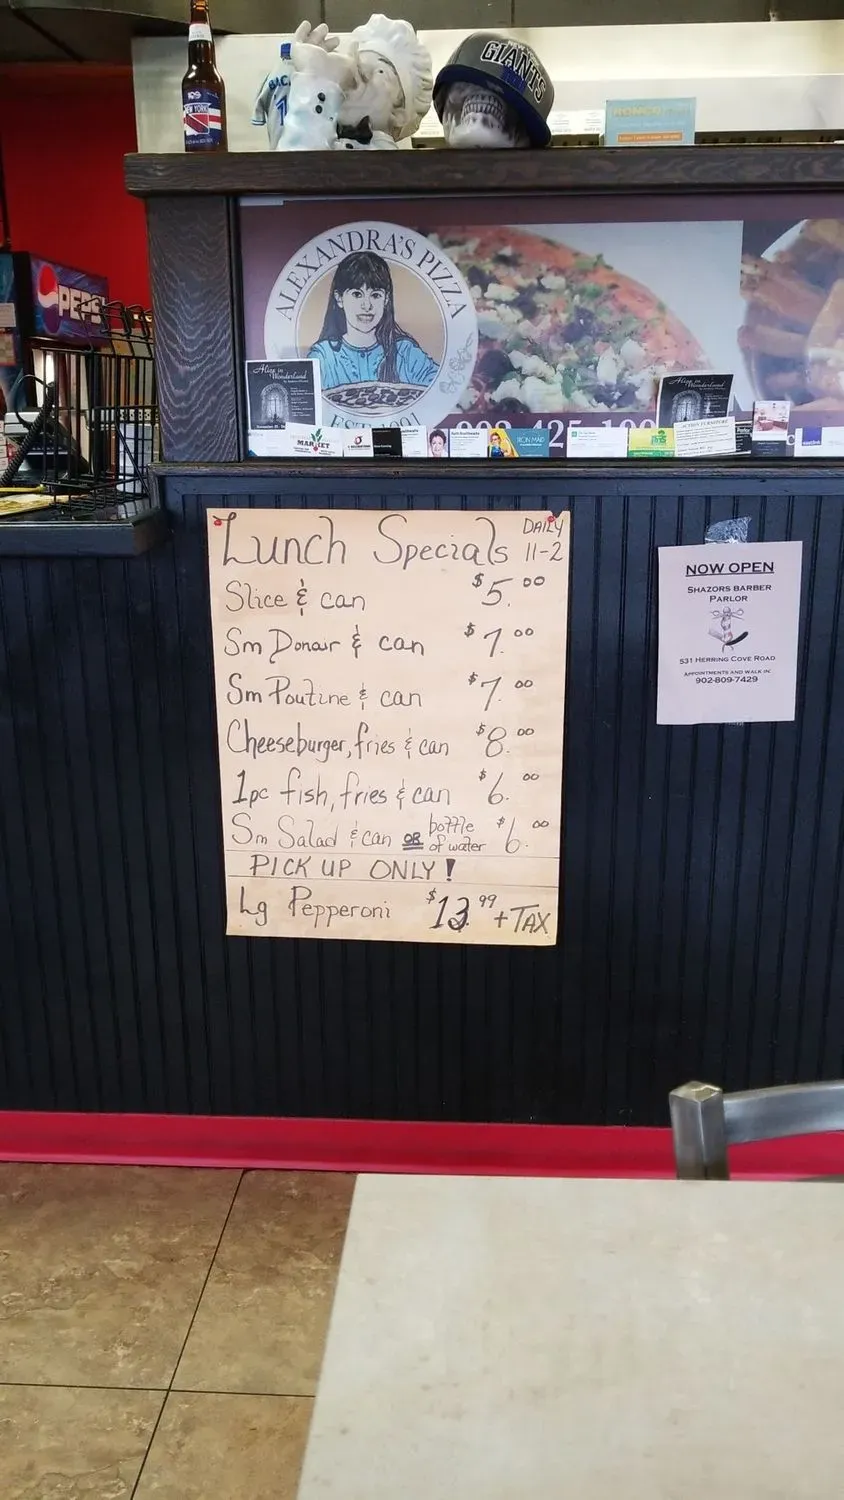 NEW YORK
NEW YORK
GIANTS
PEPSI
ALEXANDRA'S PIZZA
EST 1991
Alice in
Wonderland
Alice in
Wonderland
MARKET
IRON MAID
ACTION FURNITURE
Lunch Specials DAILY 11-2
Slice & can $5.00
Sm Donair & can $7.00
Sm Poutine & can $7.00
Cheeseburger, fries & can $8.00
1pc fish, fries & can $6.00
Sm Salad & can OR bottle of water $6.00
PICK UP ONLY!
Lg Pepperoni $13.99 + TAX
NOW OPEN
SHAZORS BARBER
PARLOR
531 HERRING COVE ROAD
APPOINTMENTS AND WALK IN:
902-809-7429